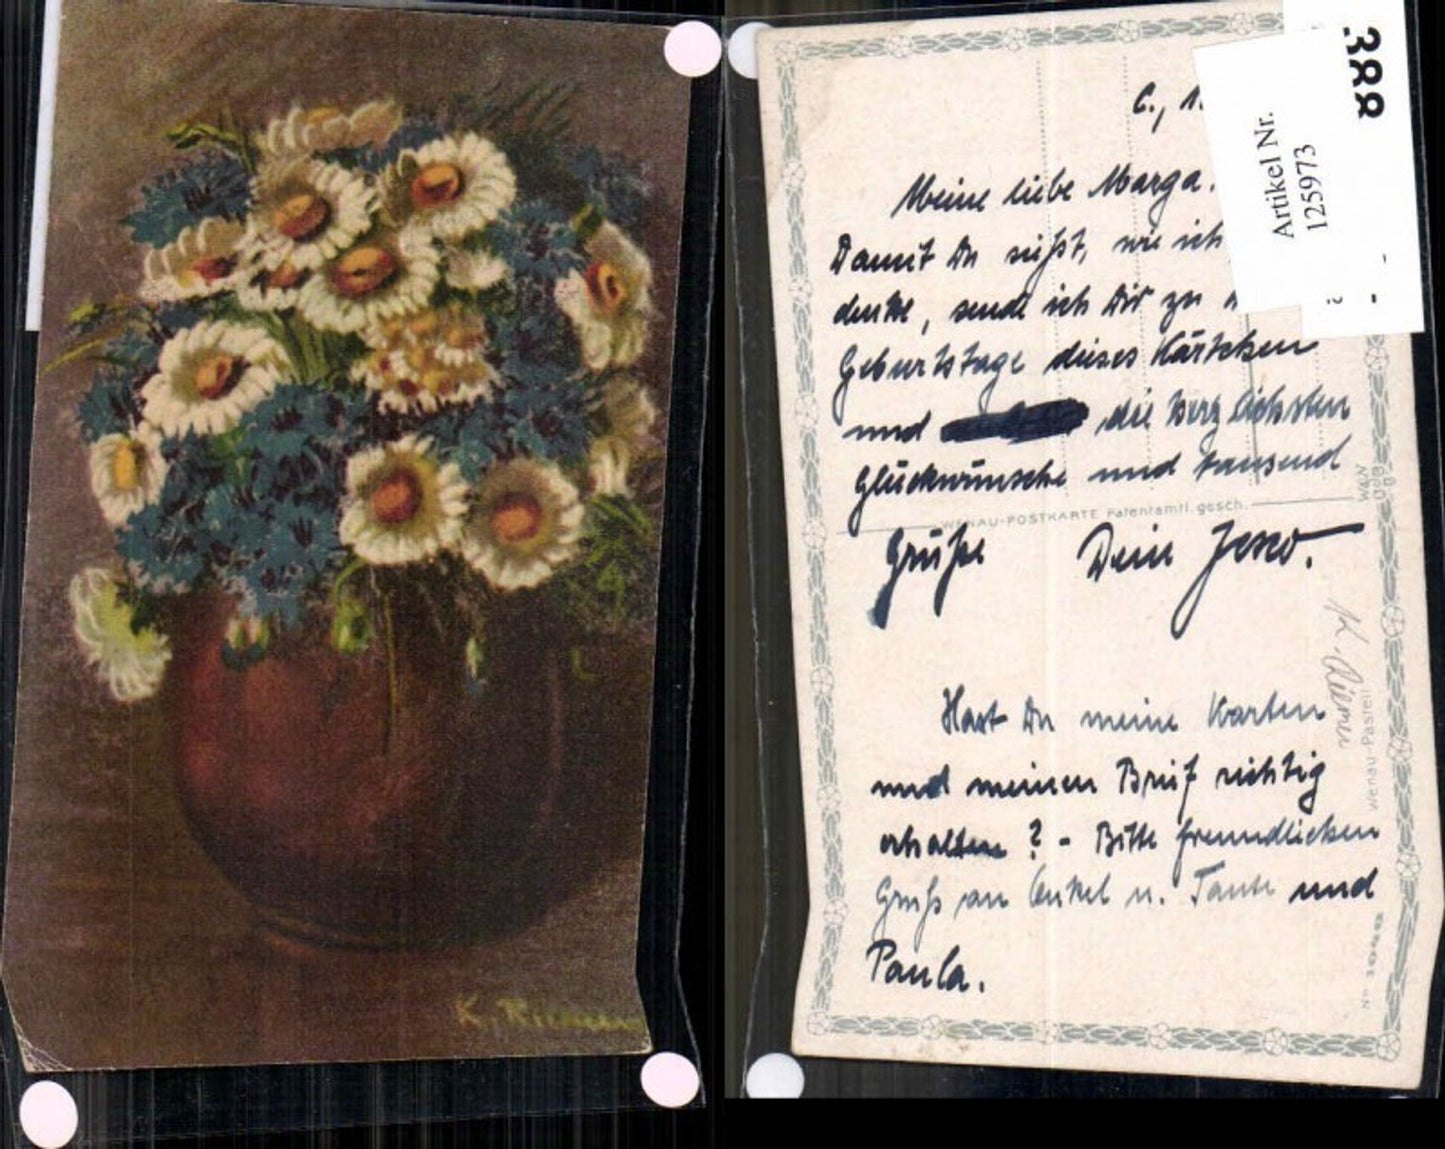 K. Riemen
C., 1.
Meine liebe Marga.
Damit Du siehst, wie ich
denke, sende ich Dir zu
Geburtstage dieses Kärtchen
und die herzlichsten
Glückwünsche und tausend
WENAU-POSTKARTE Patentamtl. gesch.
Grüße Dein Jesco.
Hast Du meine Karten
und meinen Brief richtig
erhalten? - Bitte freundlichen
Gruß an Onkel u. Tante und
Paula.
Wenau-Pastell
Artikel Nr.
125973
388